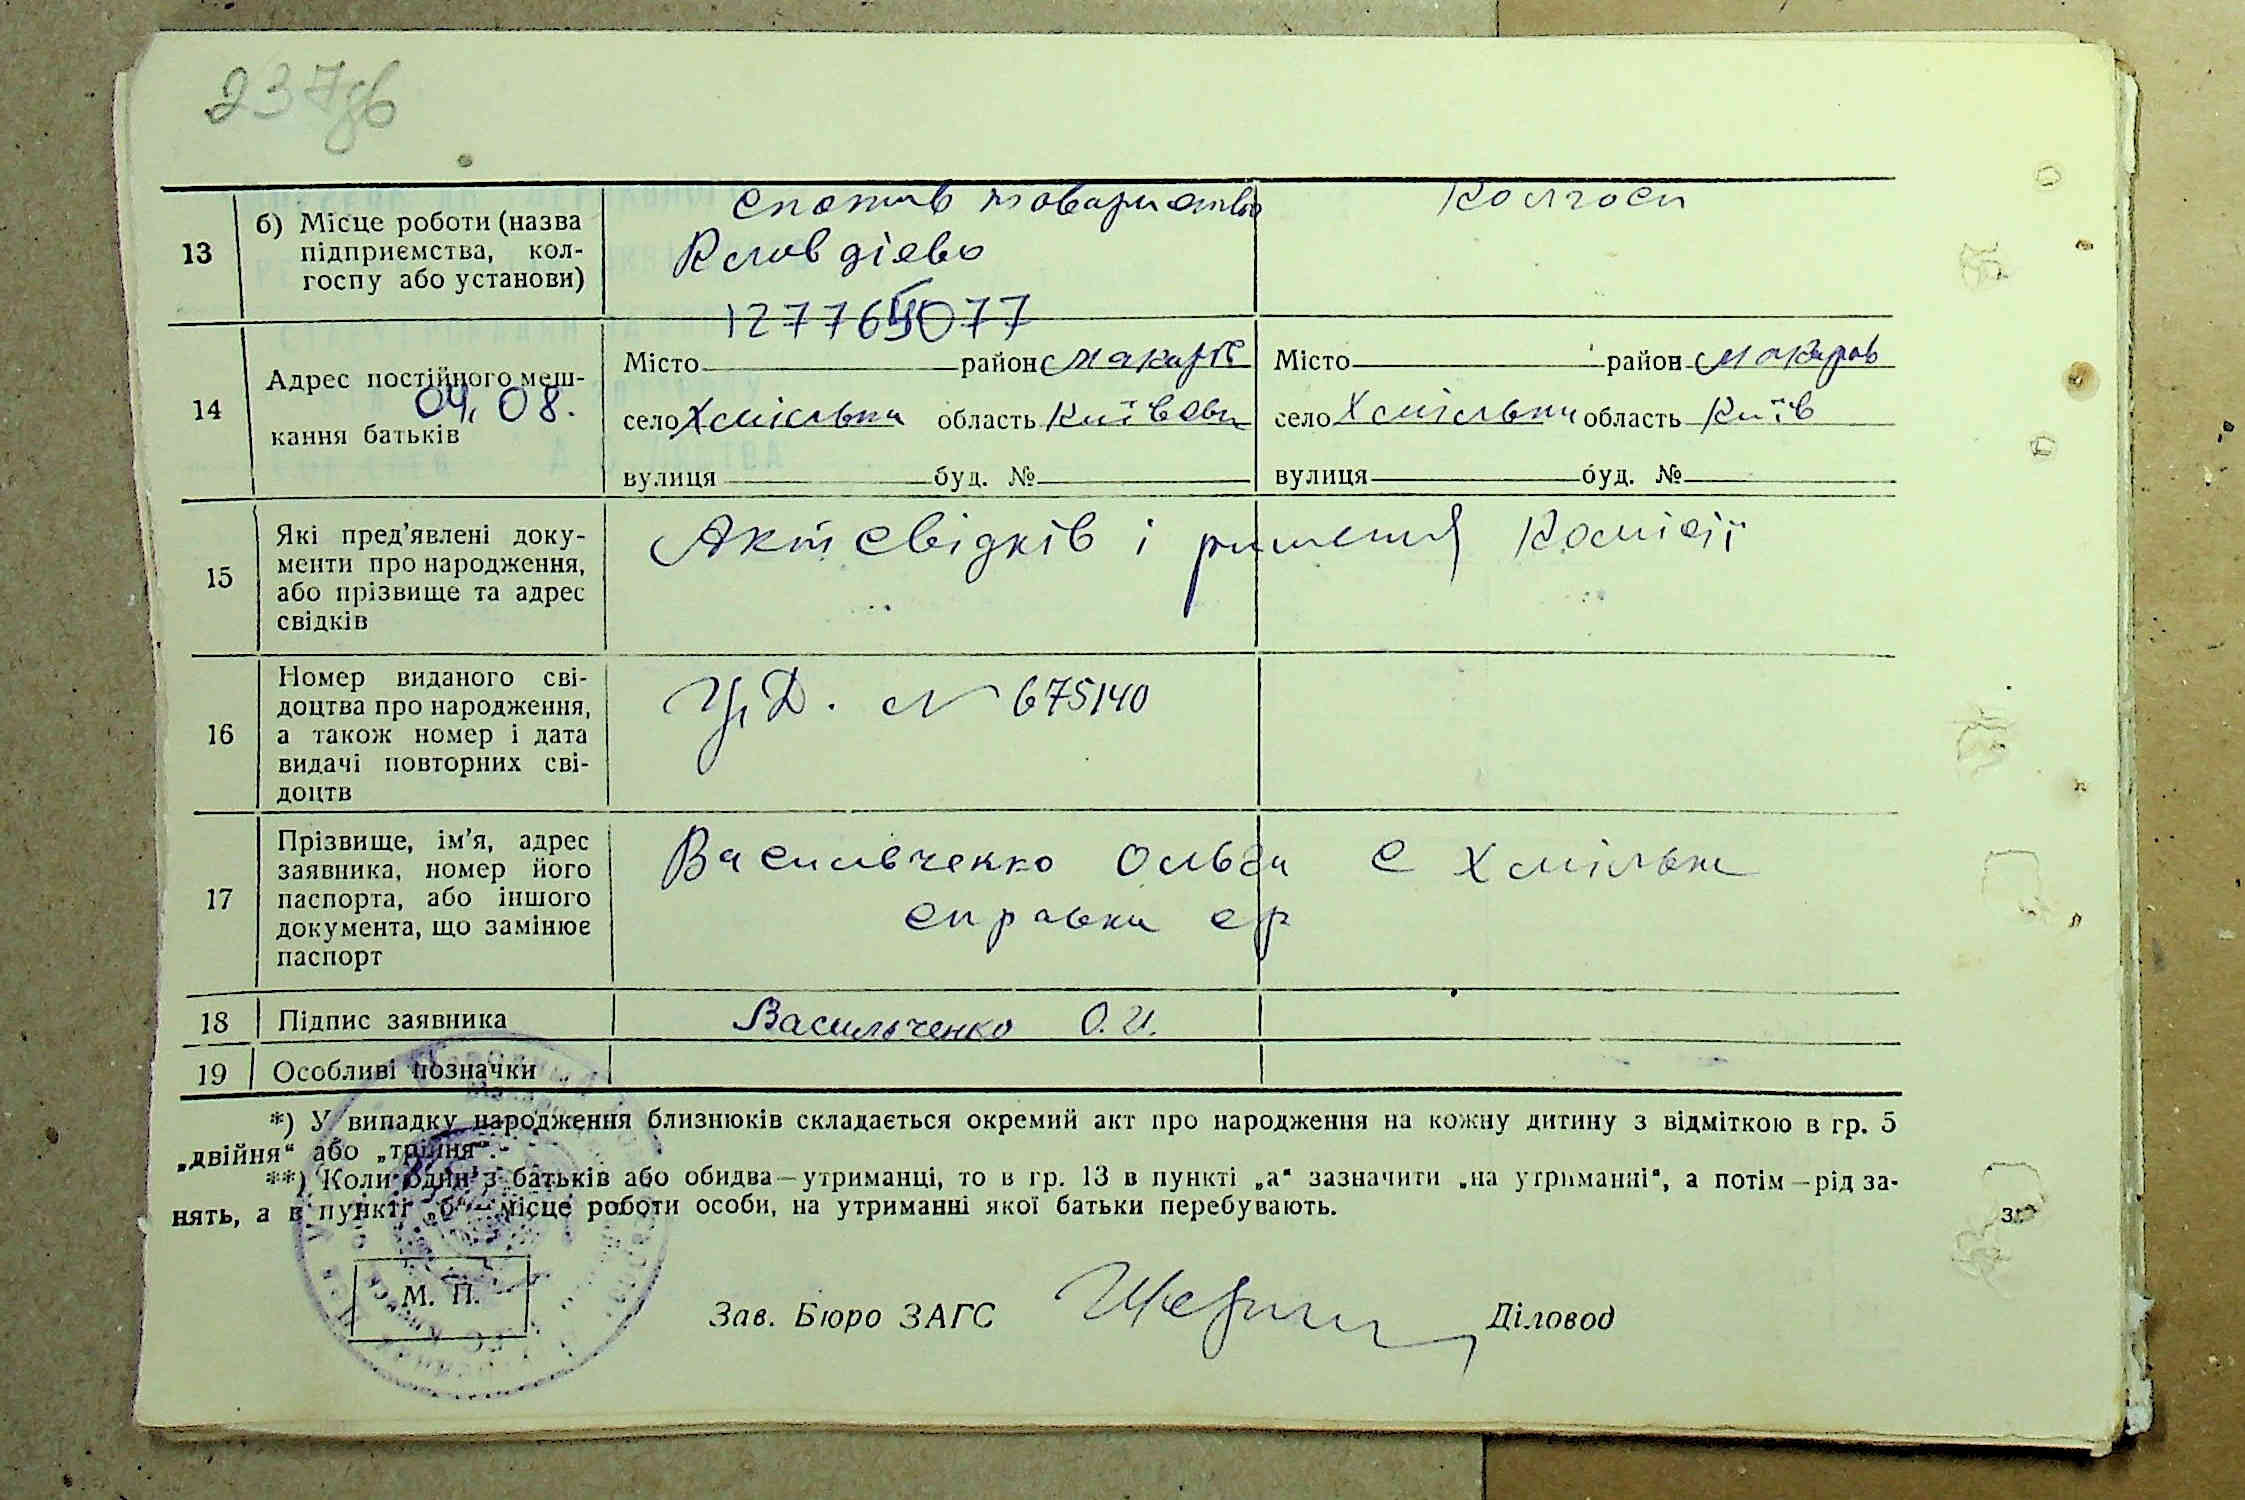 237зв
13 б) Місце роботи (назва підприємства, кол-госпу або установи)
спожив товариство
Клавдієво
Колгосп
127765077
14 Адрес постійного меш-
04.08.
кання батьків
Місто район Макарів
село Хмільна область Київська
вулиця буд. №
Місто район Макарів
село Хмільна область Київ
вулиця буд. №
15 Які пред'явлені доку-
менти про народження,
або прізвище та адрес
свідків
Акт свідків і рішення Комісії
16 Номер виданого сві-
доцтва про народження,
а також номер і дата
видачі повторних сві-
доцтв
N 675140
17 Прізвище, ім'я, адрес
заявника, номер його
паспорта, або іншого
документа, що замінює
паспорт
Васильченко Ольга с Хмільна
справка ср
18 Підпис заявника Васильченко О. И.
19 Особливі позначки
*) У випадку народження близнюків складається окремий акт про народження на кожну дитину з відміткою в гр. 5
„двійня“ або „трійня“.
**) Коли один з батьків або обидва—утриманці, то в гр. 13 в пункті „а“ зазначити „на утриманні“, а потім—рід за-
нять, а в пункті „б“—місце роботи особи, на утриманні якої батьки перебувають.
М. П.
Зав. Бюро ЗАГС Діловод